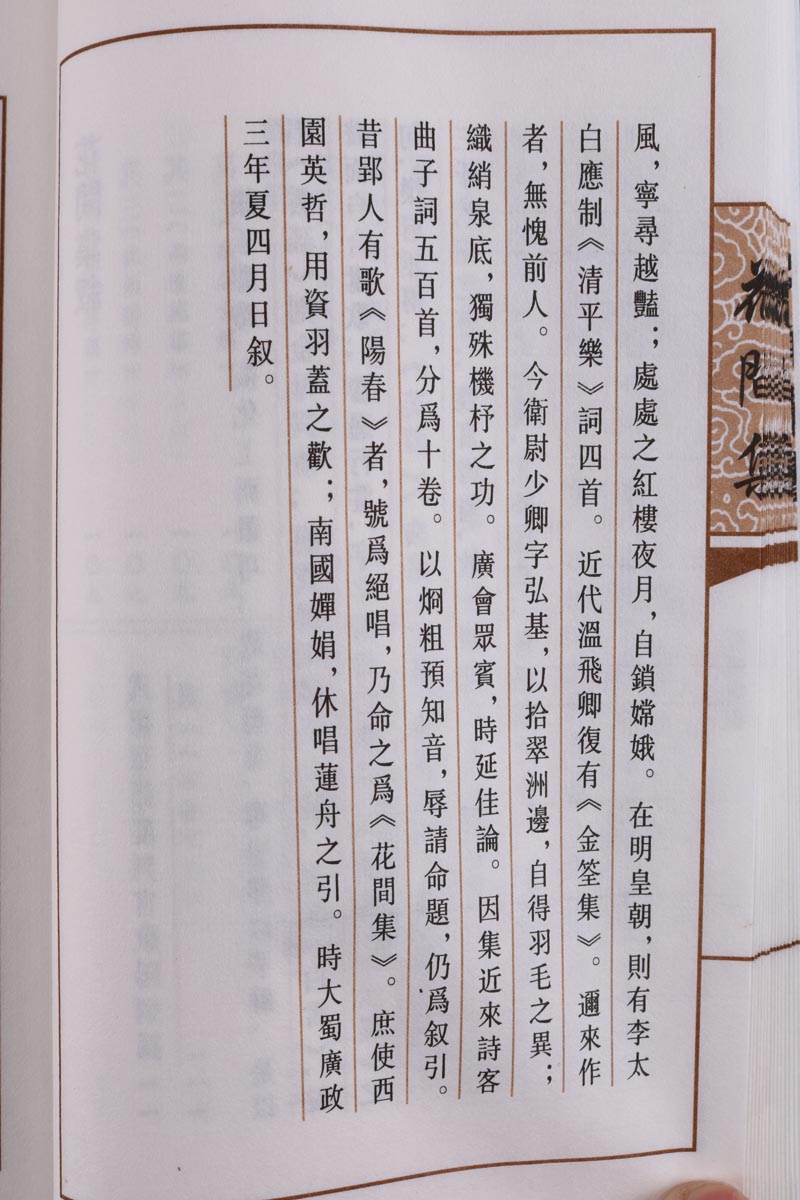 風，寧尋越豔；處處之紅樓夜月，自鎖嫦娥。在明皇朝，則有李太
白應制《清平樂》詞四首。近代溫飛卿復有《金筌集》。邇來作
者，無愧前人。今衛尉少卿字弘基，以拾翠洲邊，自得羽毛之異；
織綃泉底，獨殊機杼之功。廣會眾賓，時延佳論。因集近來詩客
曲子詞五百首，分爲十卷。以烱粗預知音，辱請命題，仍爲叙引。
昔郢人有歌《陽春》者，號爲絕唱，乃命之爲《花間集》。庶使西
園英哲，用資羽蓋之歡；南國嬋娟，休唱蓮舟之引。時大蜀廣政
三年夏四月日叙。
花間集